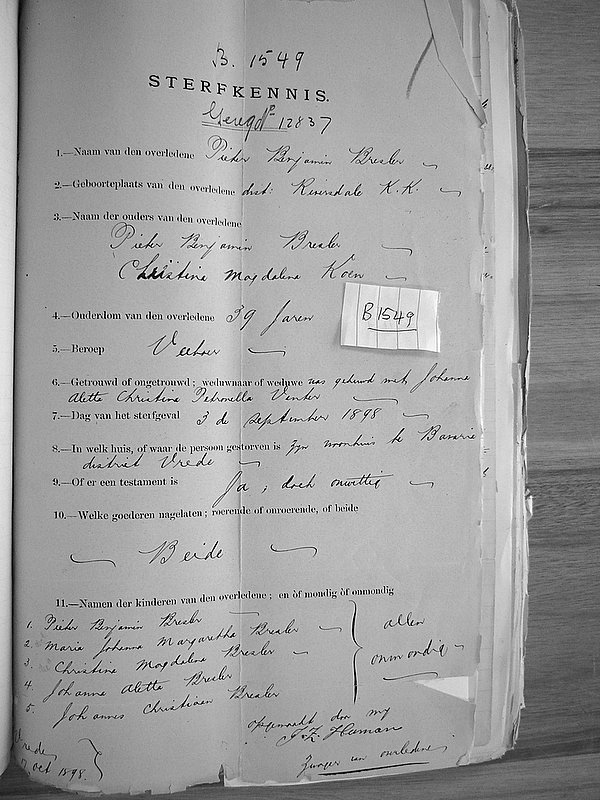 B. 1549
STERFKENNIS.
12837
1.—Naam van den overledene Pieter Benjamin Bresler
2.—Geboorteplaats van den overledene dist: Riversdale K.K.
3.—Naam der ouders van den overledene
Pieter Benjamin Bresler
Christina Magdalena Koen
4.—Ouderdom van den overledene 39 Jaren
B1549
5.—Beroep Veeboer
6.—Getrouwd of ongetrouwd; weduwnaar of weduwe was gehuwd met Johanna
Aletta Christina Petronella Venter
7.—Dag van het sterfgeval 3 de September 1898
8.—In welk huis, of waar de persoon gestorven is zyn woonhuis te Bavaria
district Vrede
9.—Of er een testament is Ja; doch onwettig
10.—Welke goederen nagelaten; roerende of onroerende, of beide
Beide
11.—Namen der kinderen van den overledene; en òf mondig òf onmondig
1. Pieter Benjamin Bresler
2. Maria Johanna Margaretha Bresler
3. Christina Magdalena Bresler
4. Johanna Aletta Bresler
5. Johannes Christiaan Bresler
allen
onmondig
opgemaakt door my
Human
Zwager van overledene
Vrede
oct 1898.